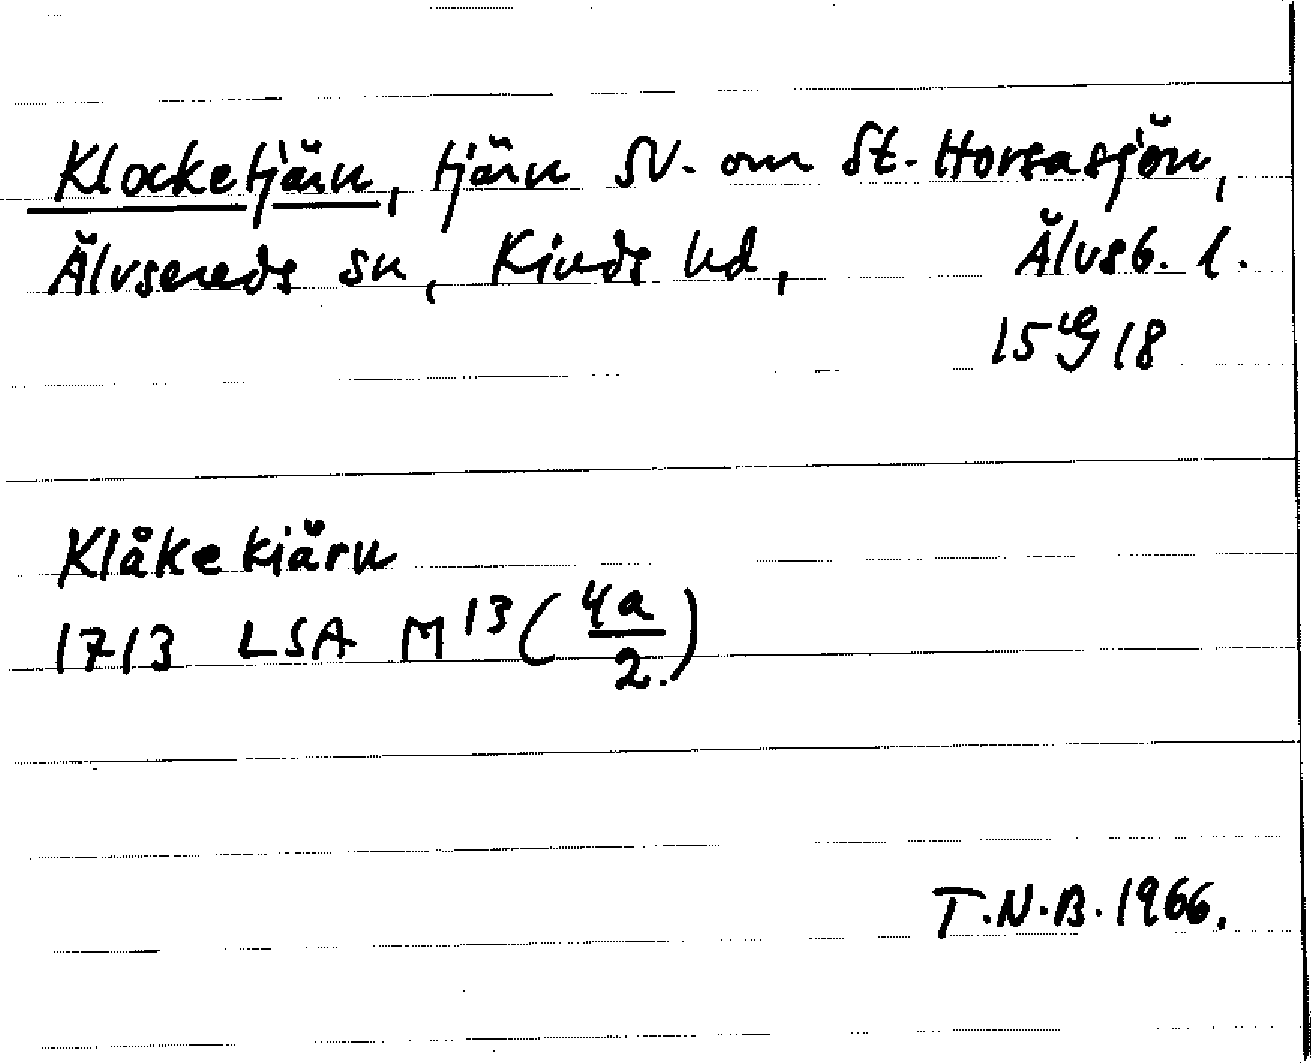 Klocketjärn, tjärn SV. om St. Horsasjön,
Älvsereds sn, Kinds hd, Älvsb. l.
15 G 18
Klåkekiärn
1713 LSA M 13 (4a/2.)
T.N.B. 1966.